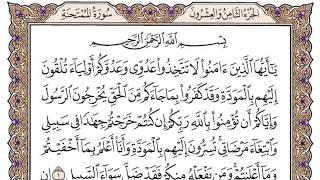 سُورَةُ الْمُمْتَحَنَةِ
الجُزْءُ الثَّامِنُ وَالعِشْرُونَ
بِسْمِ اللَّهِ الرَّحْمَٰنِ الرَّحِيمِ
يَٰٓأَيُّهَا الَّذِينَ ءَامَنُوا لَا تَتَّخِذُوا عَدُوِّى وَعَدُوَّكُمْ أَوْلِيَآءَ تُلْقُونَ
إِلَيْهِم بِالْمَوَدَّةِ وَقَدْ كَفَرُوا بِمَا جَآءَكُم مِّنَ الْحَقِّ يُخْرِجُونَ الرَّسُولَ
وَإِيَّاكُمْ أَن تُؤْمِنُوا بِاللَّهِ رَبِّكُمْ إِن كُنتُمْ خَرَجْتُمْ جِهَٰدًا فِى سَبِيلِى
وَابْتِغَآءَ مَرْضَاتِى تُسِرُّونَ إِلَيْهِم بِالْمَوَدَّةِ وَأَنَا۠ أَعْلَمُ بِمَآ أَخْفَيْتُمْ
وَمَآ أَعْلَنتُمْ وَمَن يَفْعَلْهُ مِنكُمْ فَقَدْ ضَلَّ سَوَآءَ السَّبِيلِ ١